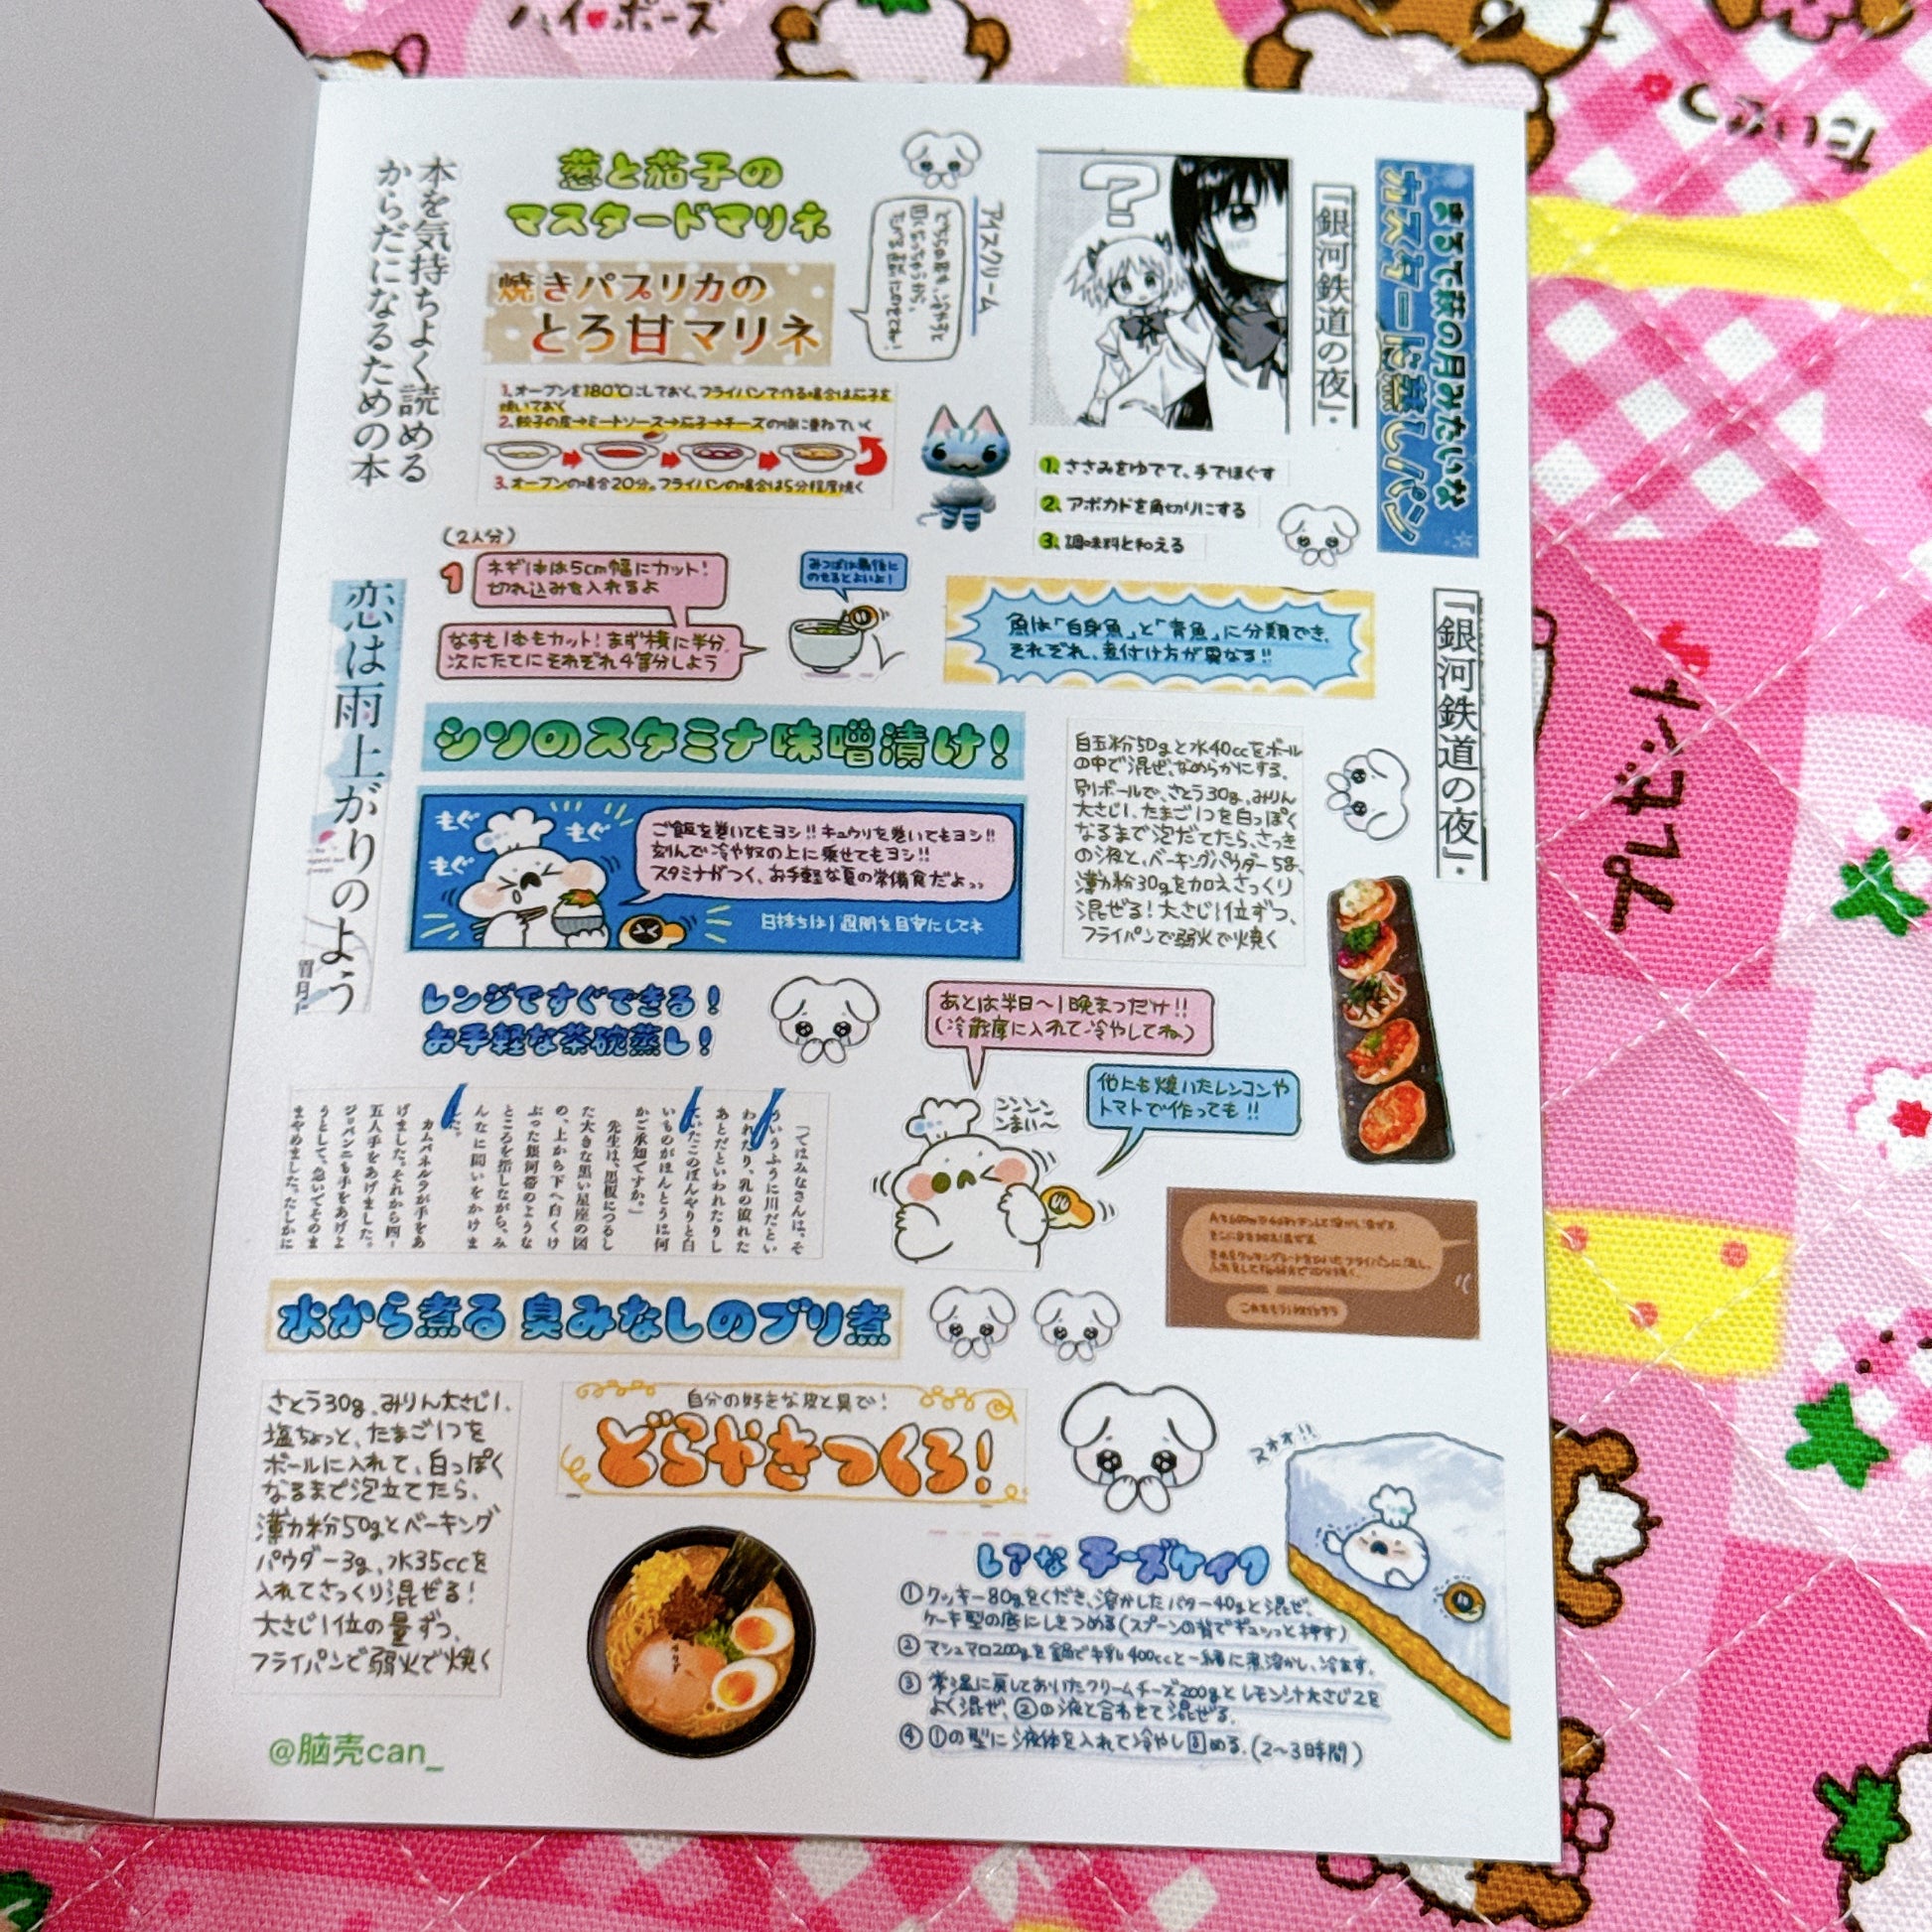 ハイ♥ポーズ
だいどころ
プレゼント
本を気持ちよく読める
からだになるための本
葱と茄子の
マスタードマリネ
焼きパプリカの
とろ甘マリネ
1.オーブンを180℃にしておく、フライパンで作る場合は茄子を
焼いておく
2.餃子の皮→ミートソース→茄子→チーズの順に重ねていく
3.オーブンの場合20分。フライパンの場合は5分程度焼く
アイスクリーム
?
「銀河鉄道の夜」.
まるで萩の月みたいな
カスタード蒸しパン
1.ささみをゆでて、手でほぐす
2.アボカドを角切りにする
3.調味料と和える
(2人分)
1
ネギ1本は5cm幅にカット!
切れ込みを入れるよ
なすも1本もカット!まず横に半分
次にたてにそれぞれ4等分しよう
みつばは最後に
のせるとよいよ!
魚は「白身魚」と「青魚」に分類でき、
それぞれ、煮付け方が異なる!!
「銀河鉄道の夜」.
恋は雨上がりのよう
シソのスタミナ味噌漬け!
もぐ
もぐ
もぐ
ご飯を巻いてもヨシ!!キュウリを巻いてもヨシ!!
刻んで冷や奴の上に乗せてもヨシ!!
スタミナがつく、お手軽な夏の常備食だよ
日持ちは1週間を目安にしてネ
白玉粉50gと水40ccをボール
の中で混ぜ、なめらかにする。
別ボールで、さとう30g、みりん
大さじ1、たまご1つを白っぽく
なるまで泡だてたら、さっき
の液と、ベーキングパウダー5g、
薄力粉30gを加えさっくり
混ぜる!大さじ1位ずつ、
フライパンで弱火で焼く
レンジですぐできる!
お手軽な茶碗蒸し!
あとは半日〜1晩まつだけ!!
(冷蔵庫に入れて冷やしてね)
他にも焼いたレンコンや
トマトで作っても!!
ンンンン
ンまい〜
「ではみなさんは、そ
ういうふうに川だとい
われたり、乳の流れた
あとだといわれたりし
ていたこのぼんやりと白
いものがほんとうは何
かご承知ですか。」
先生は、黒板につるし
た大きな黒い星座の図
の、上から下へ白くけ
ぶった銀河帯のような
ところを指しながら、み
んなに問いをかけま
した。
カムパネルラが手をあ
げました。それから四、
五人手をあげました。
ジョバンニも手をあげよ
うとして、急いでそのま
まやめました。たしかに
水から煮る 臭みなしのブリ煮
さとう30g、みりん大さじ1、
塩ちょっと、たまご1つを
ボールに入れて、白っぽく
なるまで泡立てたら、
薄力粉50gとベーキング
パウダー3g、水35ccを
入れてさっくり混ぜる!
大さじ1位の量ずつ、
フライパンで弱火で焼く
自分の好きな皮と具で!
どらやきつくろ!
スオオ!!
レアなチーズケイク
①クッキー80gをくだき、溶かしたバター40gと混ぜ、
ケーキ型の底にしきつめる(スプーンの背でギュッと押す)
②マシュマロ200gを鍋で牛乳400ccと一緒に煮溶かし、冷ます。
③常温に戻しておいたクリームチーズ200gとレモン汁大さじ2を
よく混ぜ、②の液と合わせて混ぜる。
④①の型に液体を入れて冷やし固める。(2〜3時間)
@脑壳can_